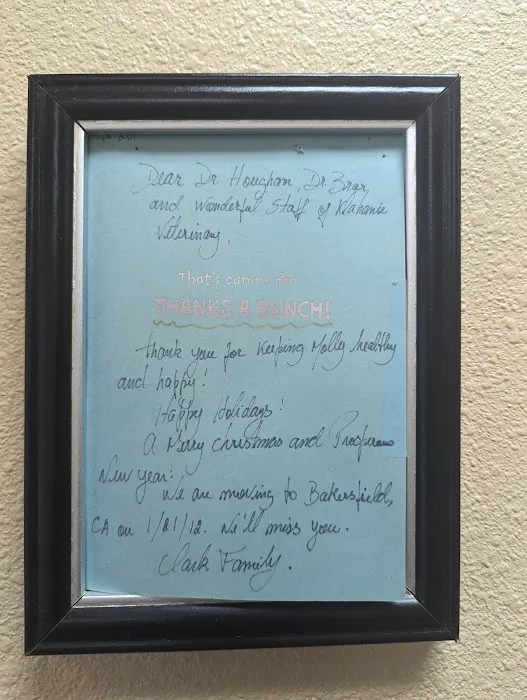 Dear Dr. Hougham, Dr. Brar,
and wonderful Staff of Klahanie
Veterinary,
That's canine for
THANKS A BUNCH!
Thank you for keeping Molly healthy
and happy!
Happy Holidays!
A Merry Christmas and Prosperous
New Year!
We are moving to Bakersfield,
CA on 1/21/12. We'll miss you.
Clark Family.